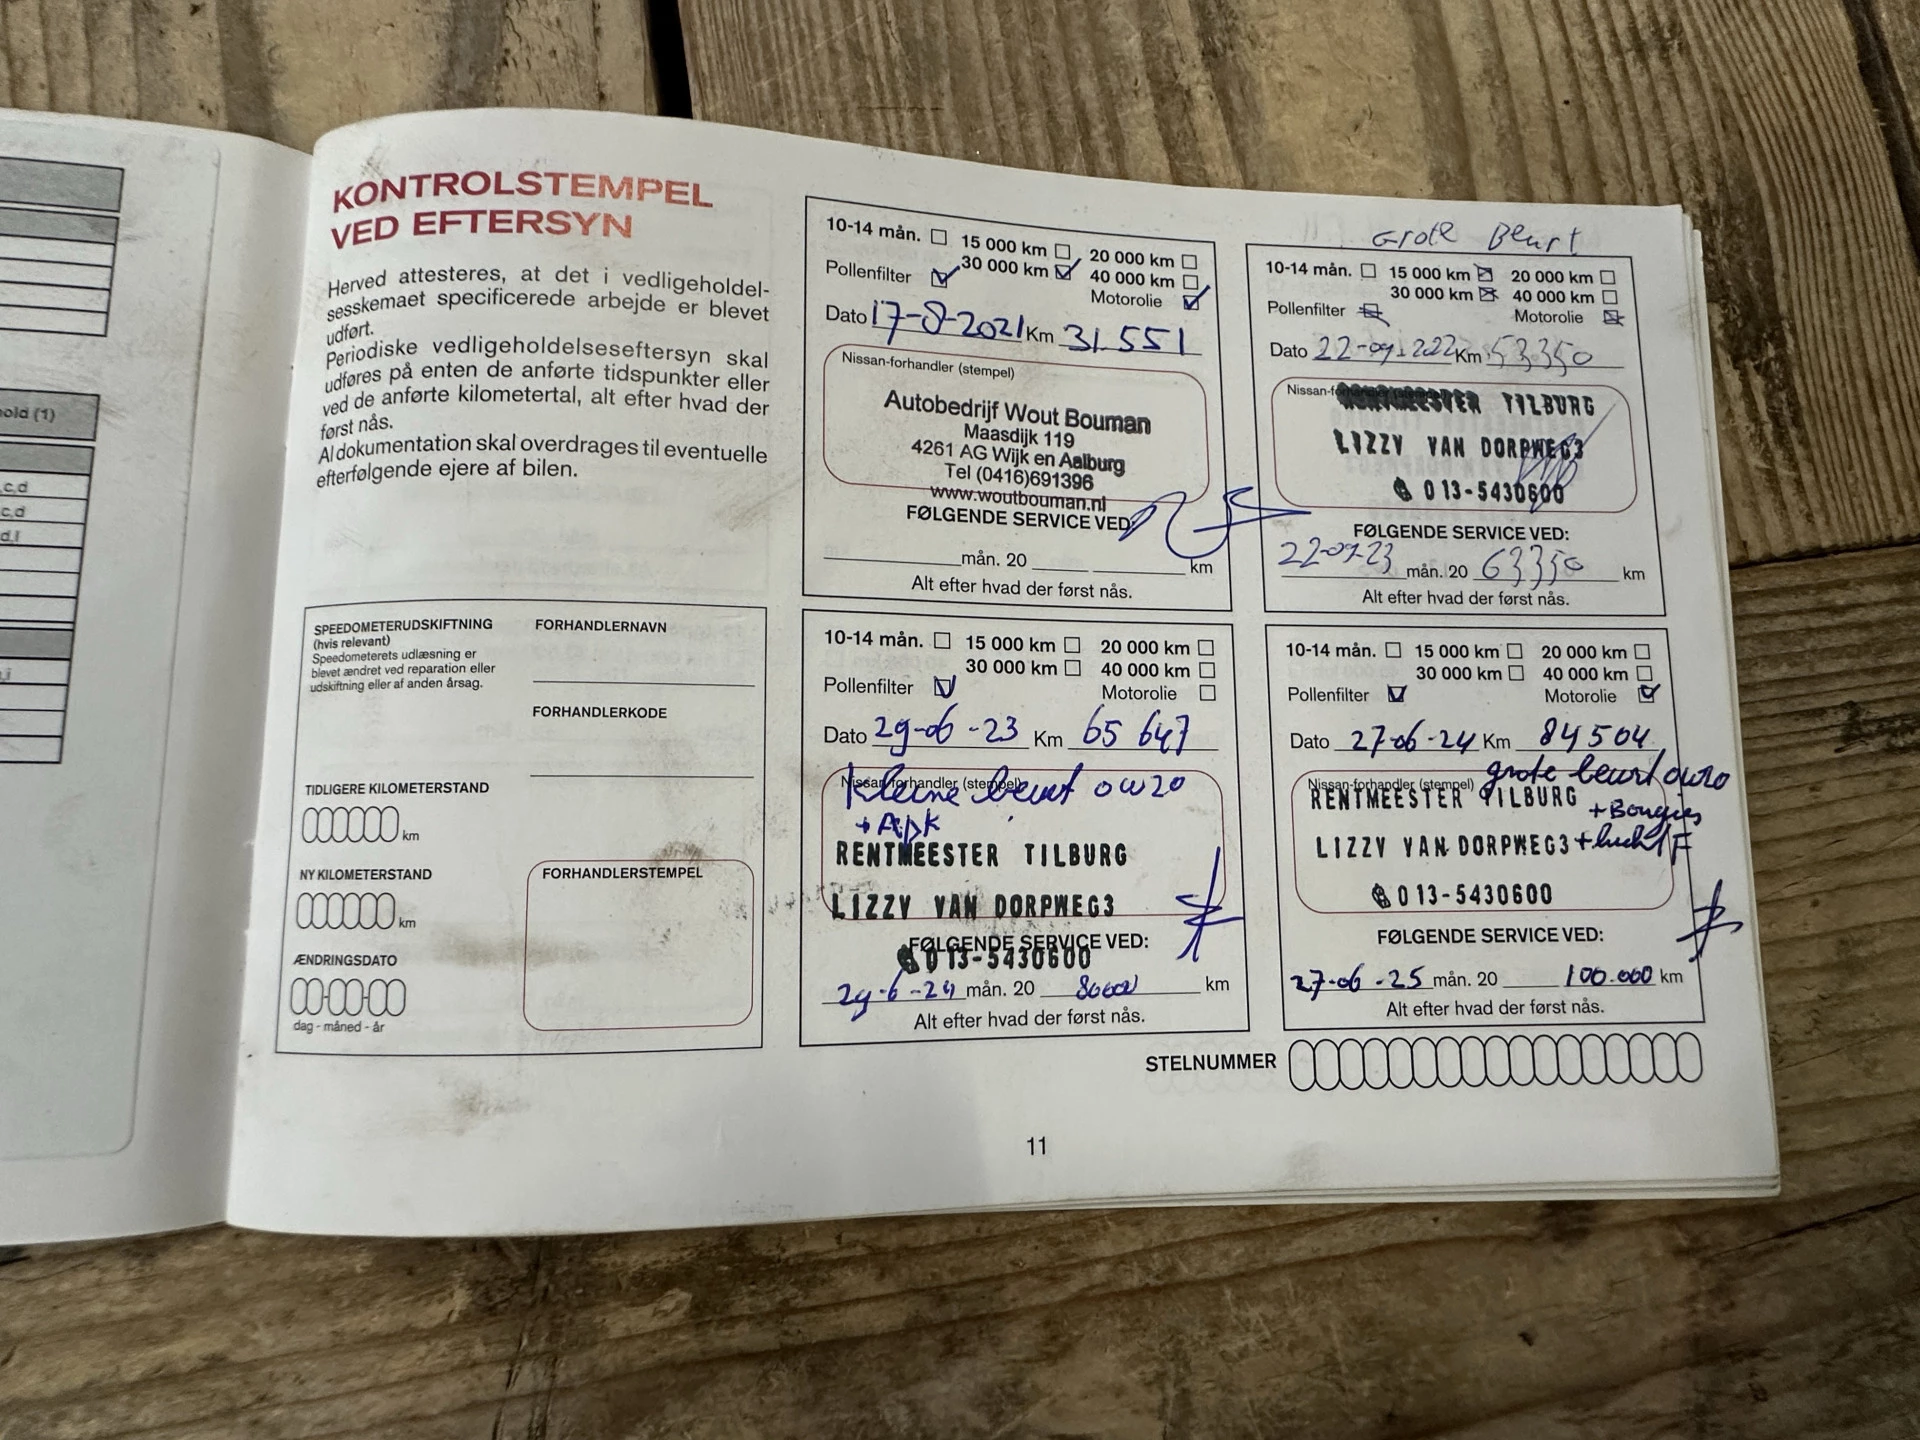 old (1)
c,d
c,d
d,l
KONTROLSTEMPEL
VED EFTERSYN
Herved attesteres, at det i vedligeholdel-
sesskemaet specificerede arbejde er blevet
udført.
Periodiske vedligeholdelseseftersyn skal
udføres på enten de anførte tidspunkter eller
ved de anførte kilometertal, alt efter hvad der
først nås.
Al dokumentation skal overdrages til eventuelle
efterfølgende ejere af bilen.
SPEEDOMETERUDSKIFTNING
(hvis relevant)
Speedometerets udlæsning er
blevet ændret ved reparation eller
udskiftning eller af anden årsag.
FORHANDLERNAVN
FORHANDLERKODE
TIDLIGERE KILOMETERSTAND
km
NY KILOMETERSTAND
km
ÆNDRINGSDATO
dag - måned - år
FORHANDLERSTEMPEL
10-14 mån. 15 000 km 20 000 km
30 000 km 40 000 km
Pollenfilter Motorolie
Dato 17-8-2021 Km 31.551
Nissan-forhandler (stempel)
Autobedrijf Wout Bouman
Maasdijk 119
4261 AG Wijk en Aalburg
Tel (0416)691396
www.woutbouman.nl
FØLGENDE SERVICE VED:
mån. 20 km
Alt efter hvad der først nås.
Grote Beurt
10-14 mån. 15 000 km 20 000 km
30 000 km 40 000 km
Pollenfilter Motorolie
Dato 22-09-2022 Km 53350
RENTMEESTER TILBURG
LIZZY VAN DORPWEG3
013-5430600
FØLGENDE SERVICE VED:
22-09-23 mån. 20 63350 km
Alt efter hvad der først nås.
10-14 mån. 15 000 km 20 000 km
30 000 km 40 000 km
Pollenfilter Motorolie
Dato 29-06-23 Km 65 647
Nissan-forhandler (stempel)
Kleine beurt 0w20
+ APK
RENTMEESTER TILBURG
LIZZY VAN DORPWEG3
FØLGENDE SERVICE VED:
013-5430600
29-6-24 mån. 20 80000 km
Alt efter hvad der først nås.
10-14 mån. 15 000 km 20 000 km
30 000 km 40 000 km
Pollenfilter Motorolie
Dato 27-06-24 Km 84504
Nissan-forhandler (stempel)
grote beurt 0w20
RENTMEESTER TILBURG
+ Bougies
LIZZY VAN DORPWEG3
+ lucht F
013-5430600
FØLGENDE SERVICE VED:
27-06-25 mån. 20 100.000 km
Alt efter hvad der først nås.
STELNUMMER
11